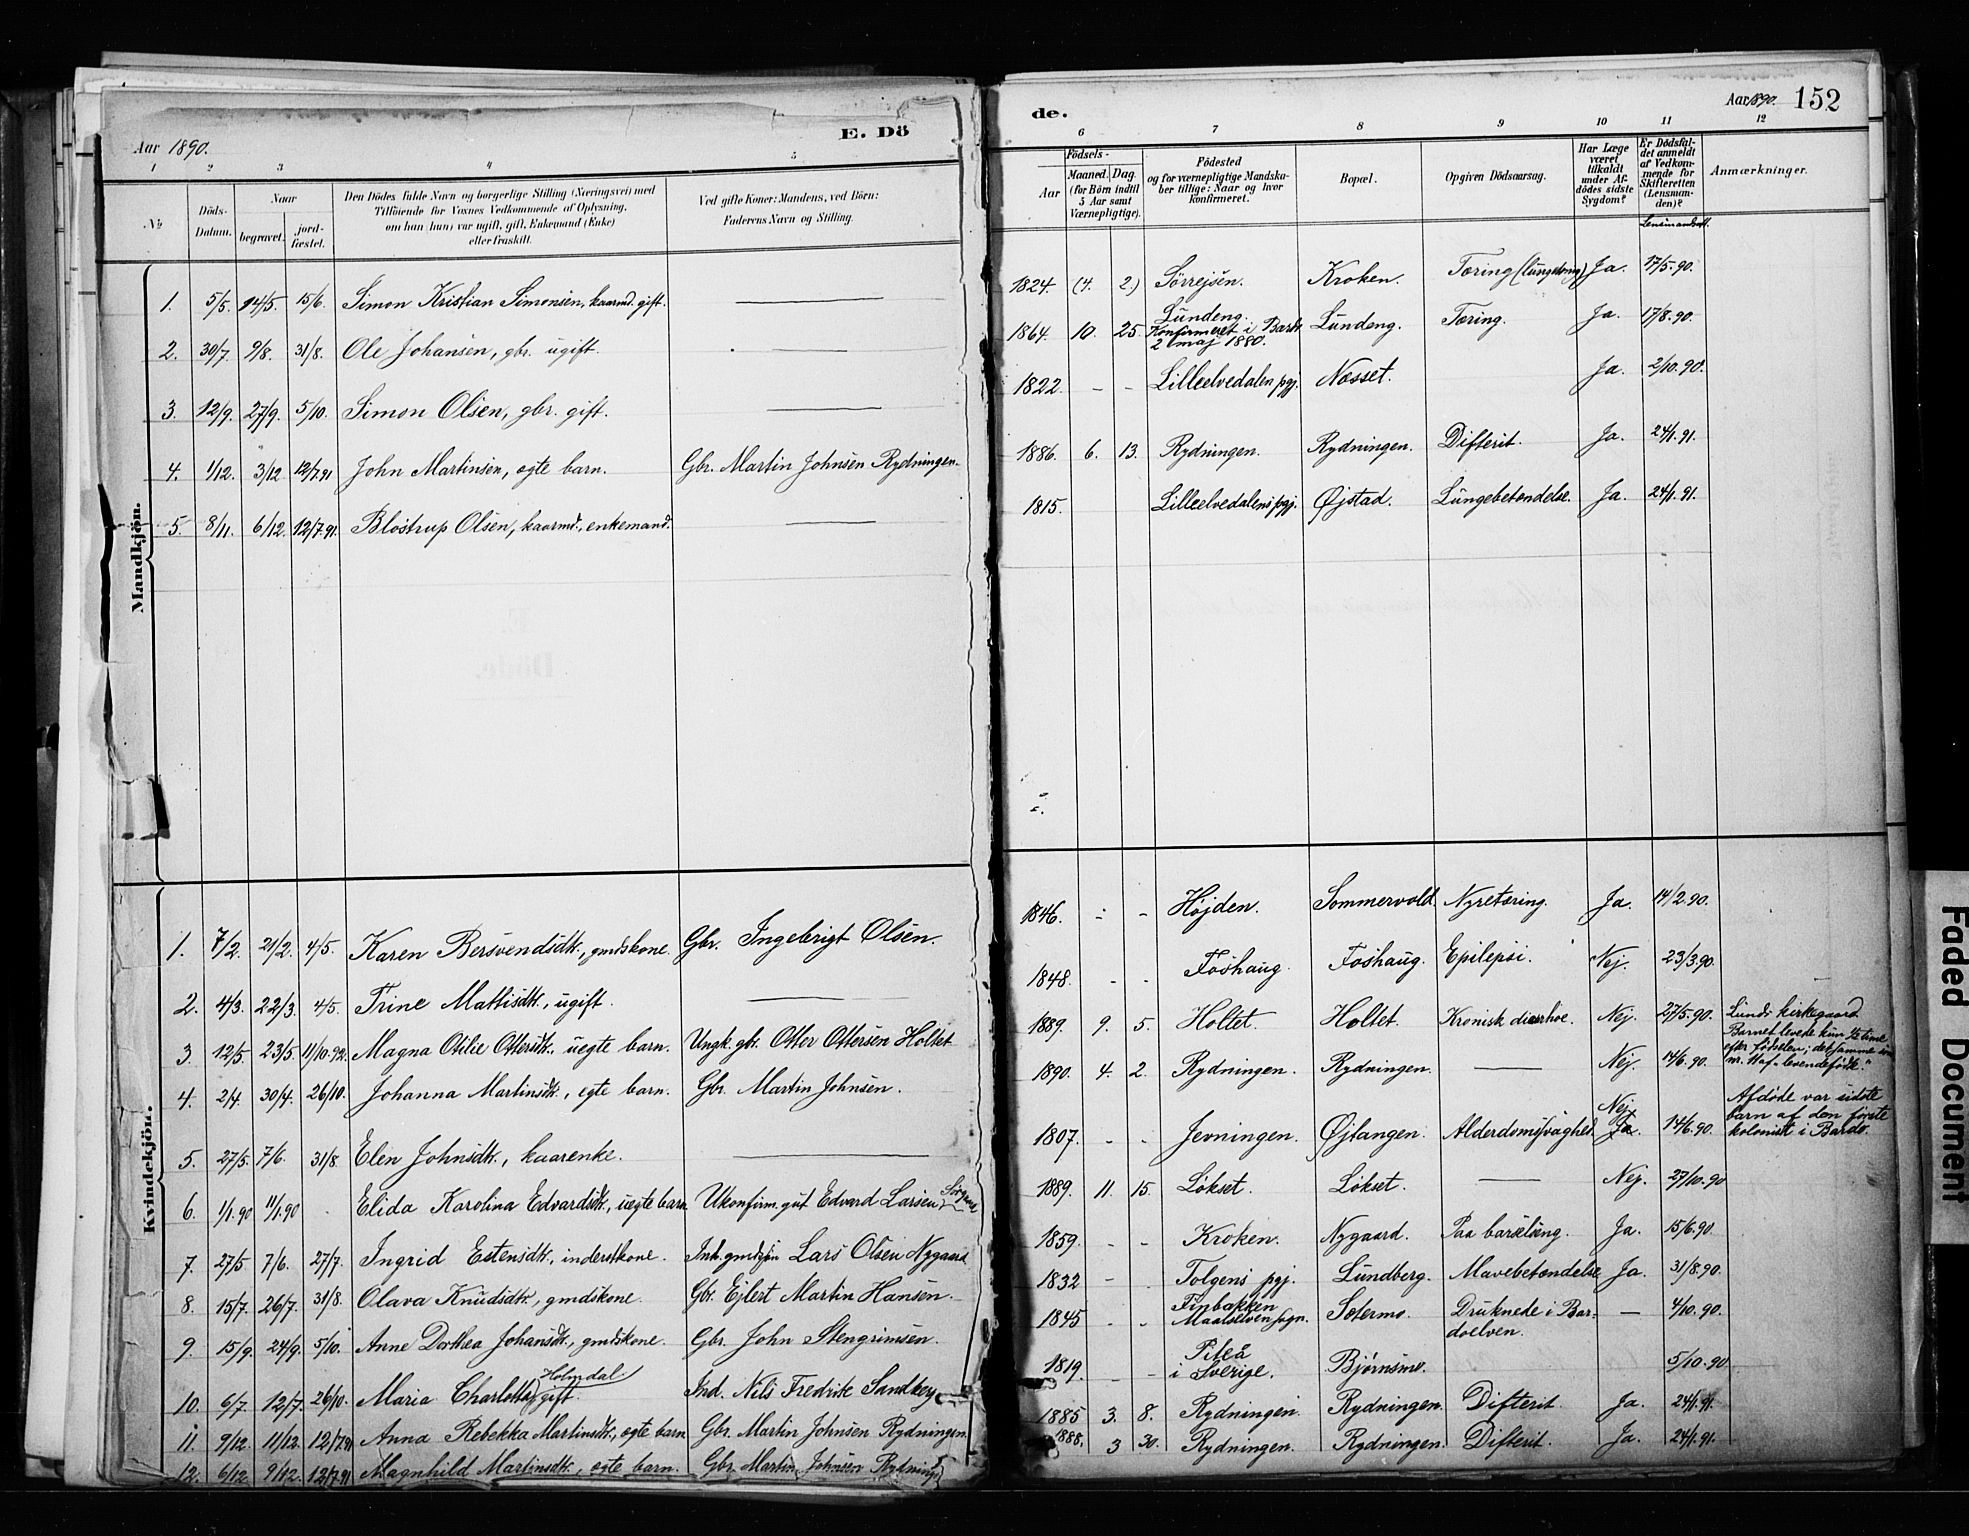 Aar 1890.
E. Dö
1 2 3 4 5
№
Döds-Datum.
Naar
begravet.
jord-fæstet.
Den Dödes fulde Navn og borgerlige Stilling (Næringsvei) med
Tilföiende for Voxnes Vedkommende af Oplysning,
om han (hun) var ugift, gift, Enkemand (Enke)
eller fraskilt.
Ved gifte Koner: Mandens, ved Börn:
Faderens Navn og Stilling.
Mandkjön.
1. 5/5. 14/5. 15/6. Simon Kristian Simonsen, kaarmd. gift.
2. 30/7. 9/8. 31/8. Ole Johansen, gbr. ugift.
3. 12/9. 27/9. 5/10. Simon Olsen, gbr. gift.
4. 1/12. 3/12 12/7.91 John Martinsen, egte barn. Gbr. Martin Johnsen Rydningen.
5. 8/11. 6/12. 12/7.91. Blostrup Olsen, kaarmd., enkemand.
Kvindekjön.
1. 7/2. 21/2. 4/5. Karen Bersvendsdtr., gmdskone. Gbr. Ingebrigt Olsen.
2. 4/3. 22/3. 4/5. Trine Mattisdtr., ugift.
3. 12/5. 23/5. 11/10.92. Magna Otilie Ottersdtr., uegte barn. Ungk. gbr. Otter Ottersen Holtet
4. 2/4. 30/4. 26/10. Johanna Martinsdtr., egte barn. Gbr. Martin Johnsen.
5. 27/5. 7/6. 31/8. Elen Johnsdtr., kaarenke.
6. 1/1.90 11/1.90 Elida Karolina Edvardsdtr., uegte barn. Ukonfirm. gut Edvard Larsen
7. 27/5 7/6. 27/7. Ingrid Estensdtr., inderstkone. Inh. gmdsøn Lars Olsen Nygaard
8. 15/7. 26/7. 31/8. Olava Knudsdtr., gmdskone. Gbr. Ejlert Martin Hansen.
9. 15/9. 24/9. 5/10. Anne Dorthea Johansdtr., gmdskone. Gbr. John Stengrimsen.
Holmdal.
10. 6/7. 12/7. 26/10. Maria Charlotte, gift. Ind. Nils Fredrik Sandberg
11. 9/12. 11/12. 12/7.91 Anna Rebekka Martinsdtr., egte barn Gbr. Martin Johnsen Rydningen.
12. 6/12 9/12. 12/7.91 Magnhild Martinsdtr., egte barn. Gbr. Martin Johnsen Rydning
de.
Aar 1890. 152
6 7 8 9 10 11 12
Aar
Födsels-
Maaned. Dag.
(for Börn indtil
5 Aar samt
Værnepligtige).
Födested
og for værnepligtige Mandska-
ber tillige: Naar og hvor
konfirmeret.
Bopæl.
Opgiven Dödsaarsag.
Har Læge
været
tilkaldt
under Af-
dödes sidste
Sygdom?
Er Dödsfal-
det anmeldt
af Vedkom-
mende for
Skifteretten
(Lensman-
den)?
Anmærkninger.
1824. (4. 2.) Sørrejsen. Kroken. Tæring (lungetæring) Ja. 17/5.90.
1864. 10. 25. Lundeng.
Konfirmeret i Bardo
2 maj 1880. Lundeng. Tæring. Ja. 17/8.90.
1822. - - Lilleelvedalen pgj. Næsset. Ja. 2/10.90.
1886. 6. 13. Rydningen. Rydningen. Difterit. Ja. 24/1.91.
1815. Lilleelvedalens pgj. Øjstad. Lungebetændelse. Ja. 24/1.91.
1846. - - Højden. Sommervold. Nyretæring. Ja. 14/2.90.
1848. - - Foshaug. Foshaug. Epilepsi. Nej. 23/3.90.
1889. 9. 5. Holtet. Holtet. Kronisk diarrhoe. Nej. 27/5.90. Lunds kirkegaard
1890. 4. 2. Rydningen. Rydningen. Nej. 14/6.90. Barnet levede kun ½ time
efter fødselen; detsamme
nr. 11 af "levendefødte."
1807. - - Jevningen. Øjtangen. Alderdomssvaghed. Nej Ja. 14/6.90. Afdøde var sidste
barn af den første
kolonist i Bardo.
1889. 11. 15. Løkset. Løkset. Nej. 27/10.90
1859. - - Kroken. Nygaard. Paa barselseng. Ja. 15/6.90.
1832 - - Tolgens pgj. Lundberg. Mavebetændelse Ja. 31/8.90.
1845 - - Finbakken
Maalselven sogn. Sætermo. Druknede i Bar-
doelven. — 4/10.90.
1819. - - Piteå
i Sverige. Bjørnsmo. 5/10.90.
1885 3. 8. Rydningen. Rydningen. Difterit. Ja. 24/1.91.
1888. 3 30. Rydningen. Rydningen. Difterit. Ja. 24/1.91.
Faded Document